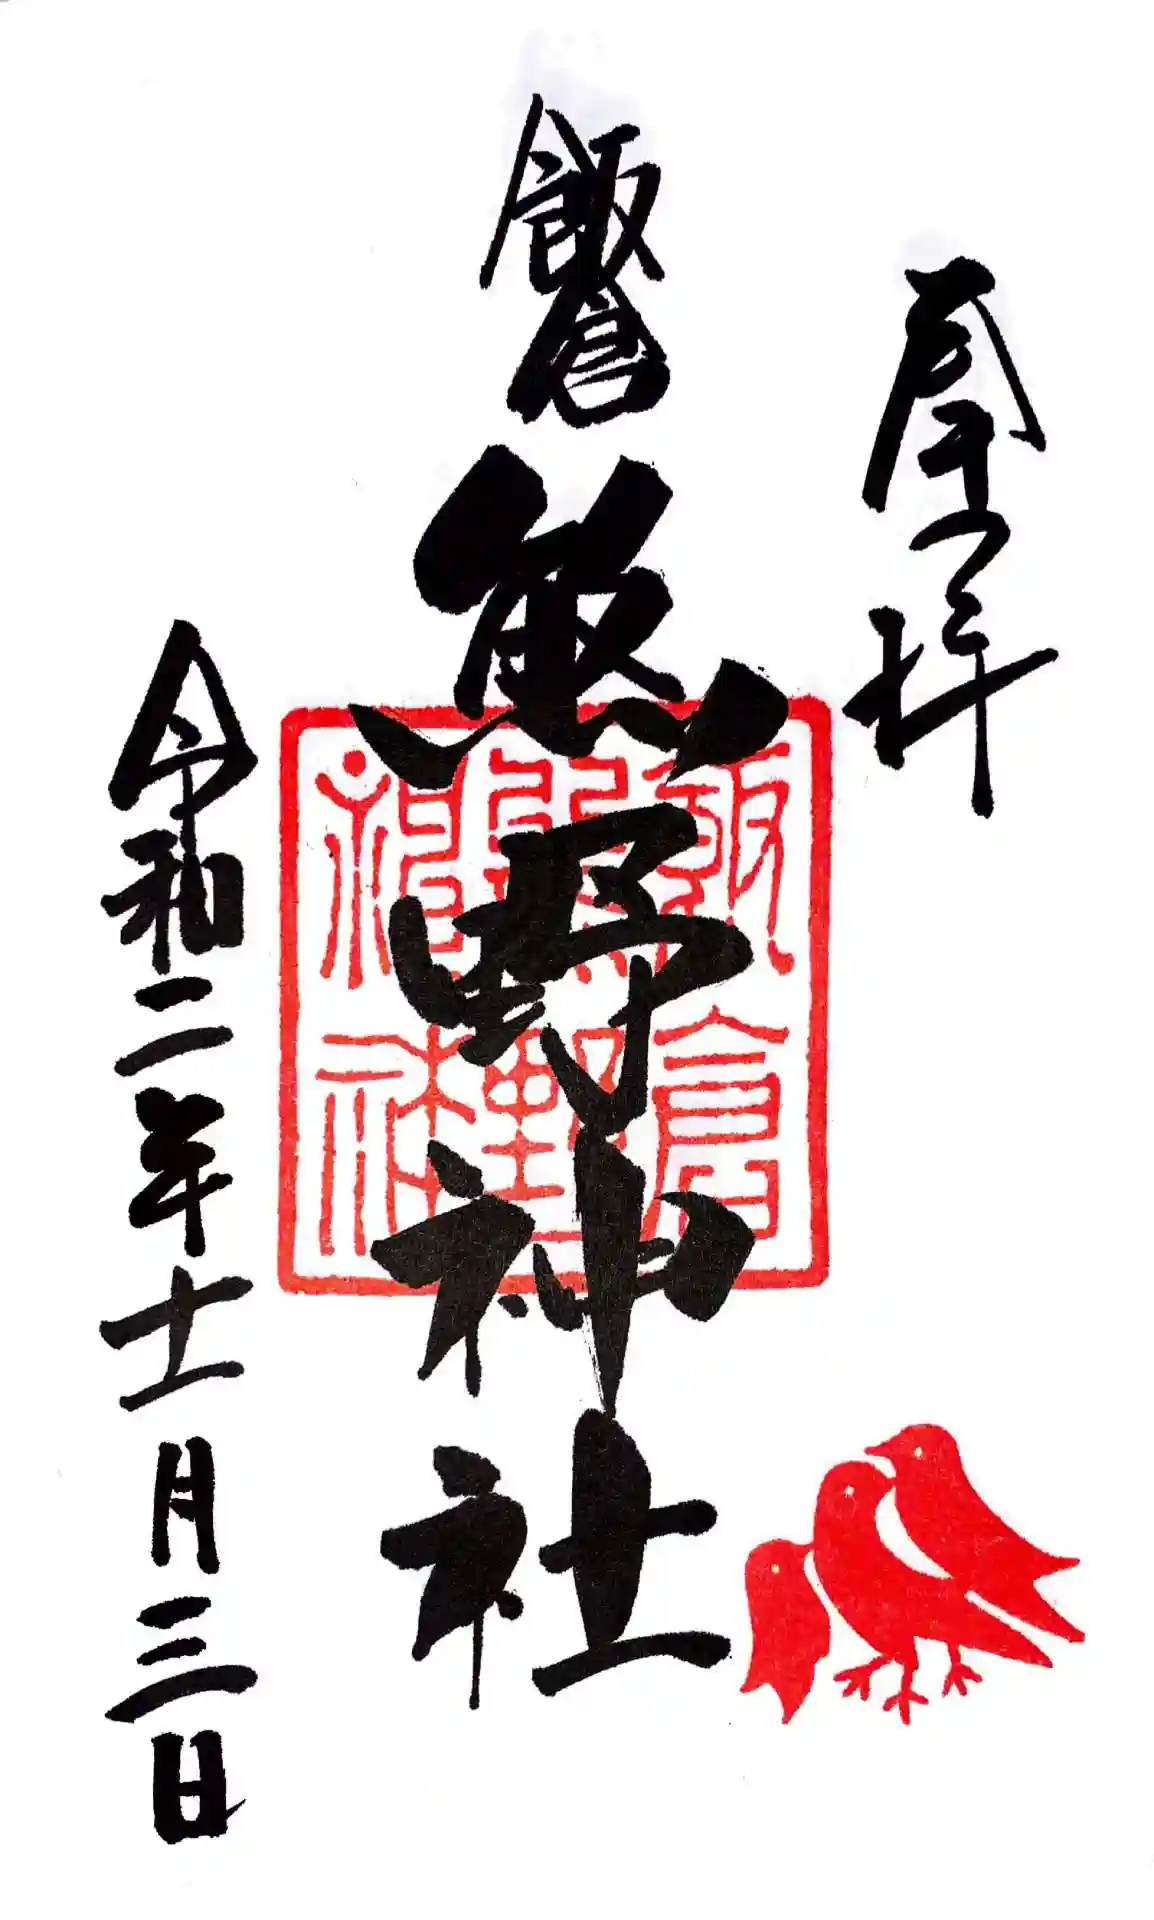 奉拝
飯倉
熊野神社
令和二年十一月三日
飯倉
熊野
神社